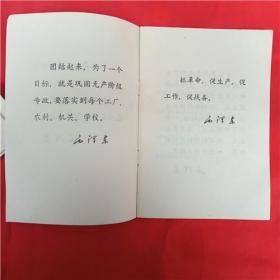 团结起来，为了一个
目标，就是巩固无产阶级
专政，要落实到每个工厂、
农村、机关、学校。
毛泽东
抓革命，促生产，促
工作，促战备。
毛泽东